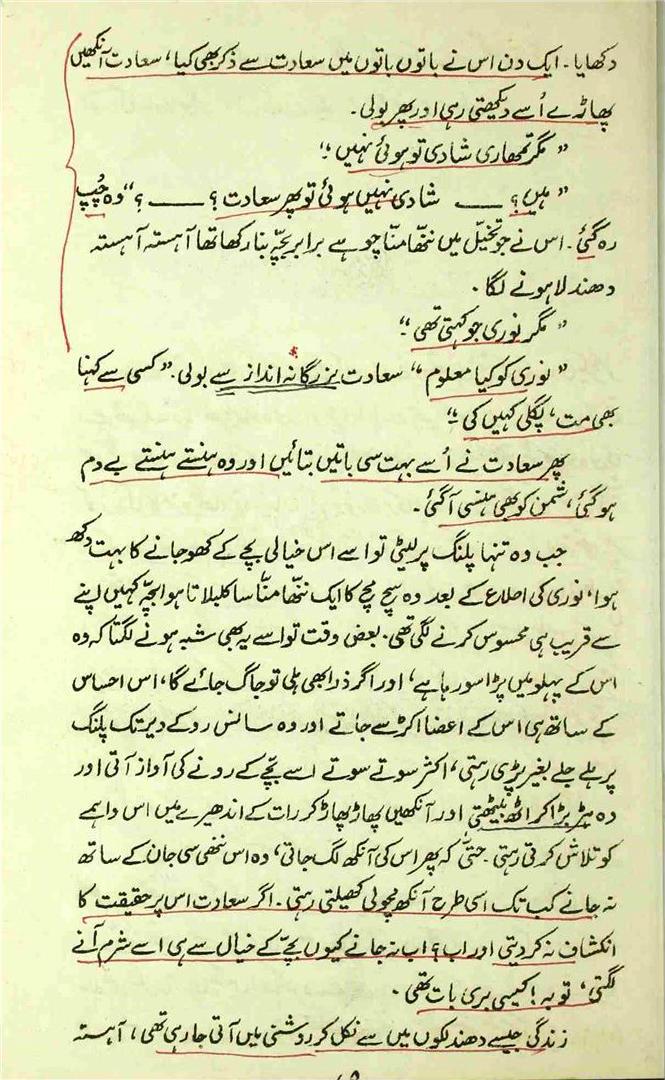 دکھایا۔ ایک دن اس نے باتوں باتوں میں سعادت سے ذکر بھی کیا، سعادت آنکھیں
پھاڑے اُسے دیکھتی رہی اور پھر بولی۔
”مگر تمھاری شادی تو ہوئی نہیں“؛
”ہیں؟ —— شادی نہیں ہوئی تو پھر سعادت؟ —— ؟“ وہ چُپ
رہ گئی۔ اس نے جو تخیّل میں ننّھا منّا چوہے برابر بچّہ بنا رکھا تھا آہستہ آہستہ
دھندلا ہونے لگا۔
”مگر نوری جو کہتی تھی“۔
”نوری کو کیا معلوم“، سعادت بزرگانہ انداز سے بولی۔ ”کسی سے کہنا
بھی مت، پگلی کہیں کی“؛
پھر سعادت نے اُسے بہت سی باتیں بتائیں اور وہ ہنستے ہنستے بے دم
ہو گئی، شمن کو بھی ہنسی آ گئی۔
جب وہ تنہا پلنگ پر لیٹی تو اسے اس خیالی بچے کے کھو جانے کا بہت دکھ
ہوا، نوری کی اطلاع کے بعد وہ سچ مچ کا ایک ننّھا منّا سا کلبلاتا ہوا بچّہ کہیں اپنے
سے قریب ہی محسوس کرنے لگی تھی۔ بعض وقت تو اسے یہ بھی شبہ ہونے لگتا کہ وہ
اس کے پہلو میں پڑا سو رہا ہے، اور اگر ذرا بھی ہلی تو جاگ جائے گا، اس احساس
کے ساتھ ہی اس کے اعضا اکڑ سے جاتے اور وہ سانس روکے دیر تک پلنگ
پر ہلے جلے بغیر پڑی رہتی، اکثر سوتے سوتے اسے بچّے کے رونے کی آواز آتی اور
وہ ہڑبڑا کر اٹھ بیٹھتی اور آنکھیں پھاڑ پھاڑ کر رات کے اندھیرے میں اس واہمے
کو تلاش کرتی رہتی۔ حتیٰ کہ پھر اس کی آنکھ لگ جاتی، وہ اس ننھی سی جان کے ساتھ
نہ جانے کب تک اسی طرح آنکھ مچولی کھیلتی رہتی۔ اگر سعادت اس پر حقیقت کا
انکشاف نہ کر دیتی اور اب؟ اب نہ جانے کیوں بچّے کے خیال سے ہی اسے شرم آنے
لگتی، توبہ! کیسی بری بات تھی۔
زندگی جیسے دھندلکوں میں سے نکل کر روشنی میں آتی جا رہی تھی، آہستہ